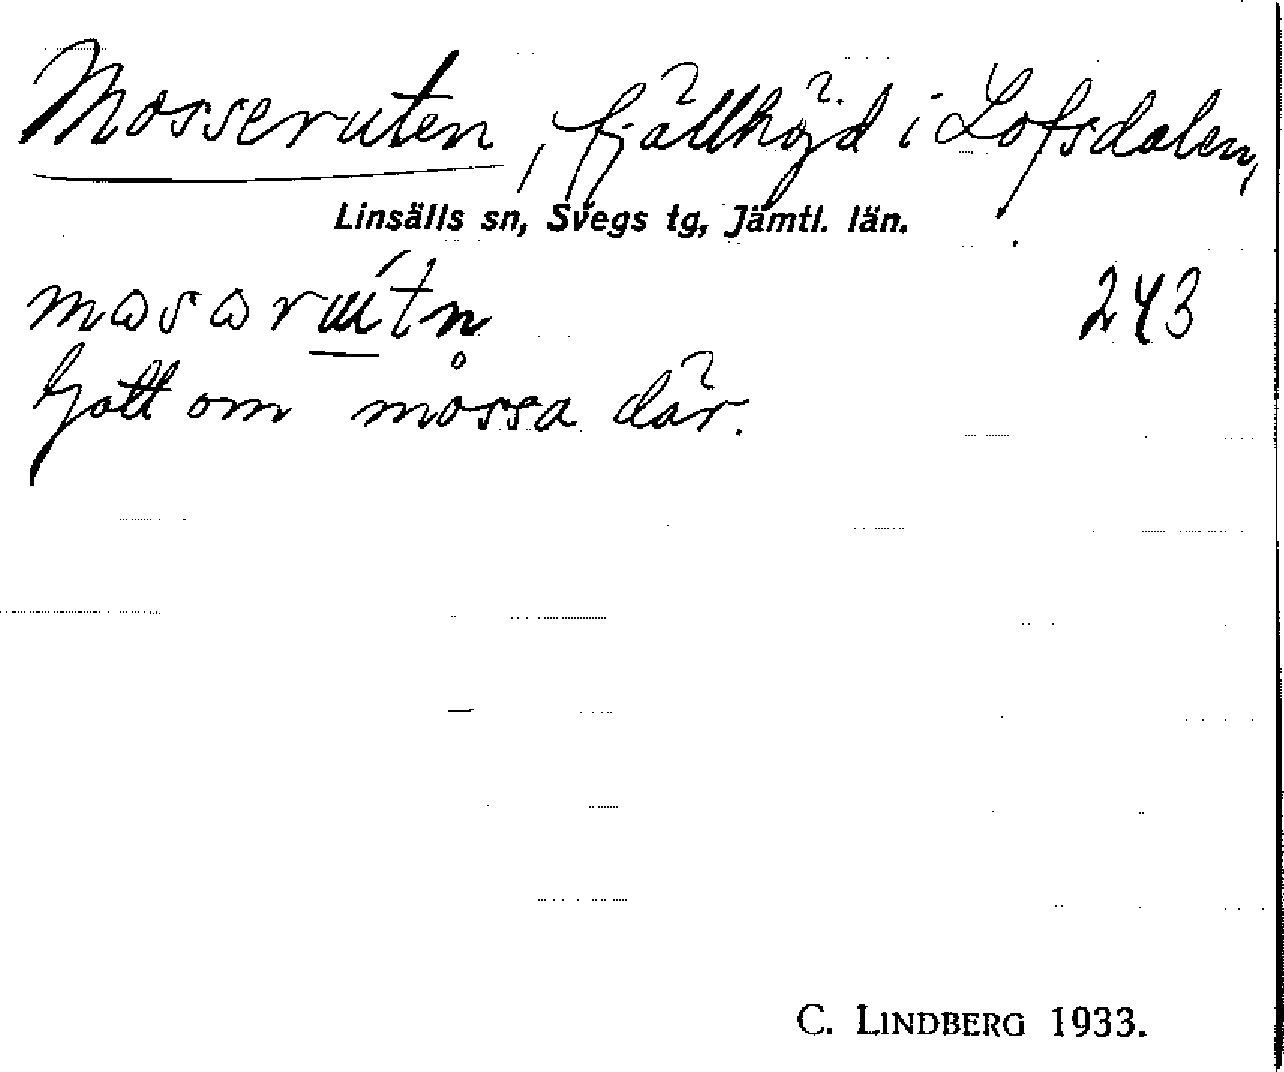 Mosseruten, fjällhöjd i Lofsdalen,
Linsälls sn, Svegs tg, Jämtl. län.
243
Gott om mossa där.
C. LINDBERG 1933.